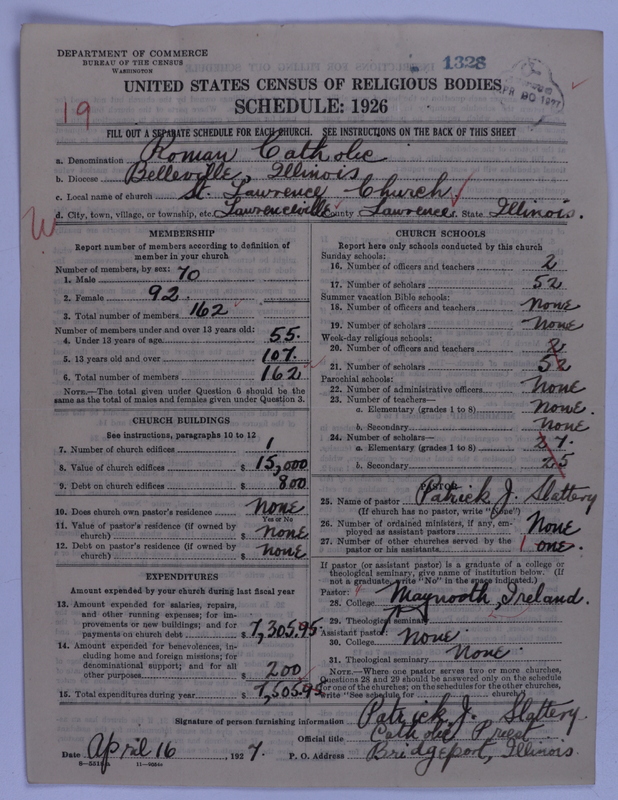 DEPARTMENT OF COMMERCE
BUREAU OF THE CENSUS
WASHINGTON
1328
APR 30 1927
UNITED STATES CENSUS OF RELIGIOUS BODIES
SCHEDULE: 1926
19
FILL OUT A SEPARATE SCHEDULE FOR EACH CHURCH. SEE INSTRUCTIONS ON THE BACK OF THIS SHEET
a. Denomination Roman Catholic
b. Diocese Belleville, Illinois
c. Local name of church St. Lawrence Church
d. City, town, village, or township, etc. Lawrenceville County Lawrence State Illinois.
MEMBERSHIP
Report number of members according to definition of
member in your church
Number of members, by sex:
1. Male 70
2. Female 92
3. Total number of members 162
Number of members under and over 13 years old:
4. Under 13 years of age 55.
5. 13 years old and over 107.
6. Total number of members 162
NOTE.—The total given under Question 6 should be the
same as the total of males and females given under Question 3.
CHURCH BUILDINGS
See instructions, paragraphs 10 to 12
7. Number of church edifices 1
8. Value of church edifices $ 15,000
9. Debt on church edifices $ 800
10. Does church own pastor's residence? None
Yes or No
11. Value of pastor's residence (if owned by
church) $ None
12. Debt on pastor's residence (if owned by
church) $ None
EXPENDITURES
Amount expended by your church during last fiscal year
13. Amount expended for salaries, repairs,
and other running expenses; for im-
provements or new buildings; and for
payments on church debt $ 7,305.95
14. Amount expended for benevolences, in-
cluding home and foreign missions; for
denominational support; and for all
other purposes $ 200
15. Total expenditures during year $ 7,505.95
CHURCH SCHOOLS
Report here only schools conducted by this church
Sunday schools:
16. Number of officers and teachers 2
17. Number of scholars 52
Summer vacation Bible schools:
18. Number of officers and teachers None
19. Number of scholars None
Week-day religious schools:
20. Number of officers and teachers 2
21. Number of scholars 52
Parochial schools:
22. Number of administrative officers None
23. Number of teachers—
a. Elementary (grades 1 to 8) None.
b. Secondary None
24. Number of scholars—
a. Elementary (grades 1 to 8) 27.
b. Secondary 25
PASTOR
25. Name of pastor Patrick J. Slattery
(If church has no pastor, write "None")
26. Number of ordained ministers, if any, em-
ployed as assistant pastors None
27. Number of other churches served by the
pastor or his assistants 1 one.
If pastor (or assistant pastor) is a graduate of a college or
theological seminary, give name of institution below. (If
not a graduate, write "No" in the space indicated.)
Pastor:
28. College Maynooth, Ireland.
29. Theological seminary
Assistant pastor:
30. College None
31. Theological seminary None
NOTE.—Where one pastor serves two or more churches,
Questions 28 and 29 should be answered only on the schedule
for one of the churches; on the schedules for the other churches,
write "See schedule for church"
Signature of person furnishing information Patrick J. Slattery
Official title Catholic Priest
Date April 16, 1927. P. O. Address Bridgeport, Illinois.